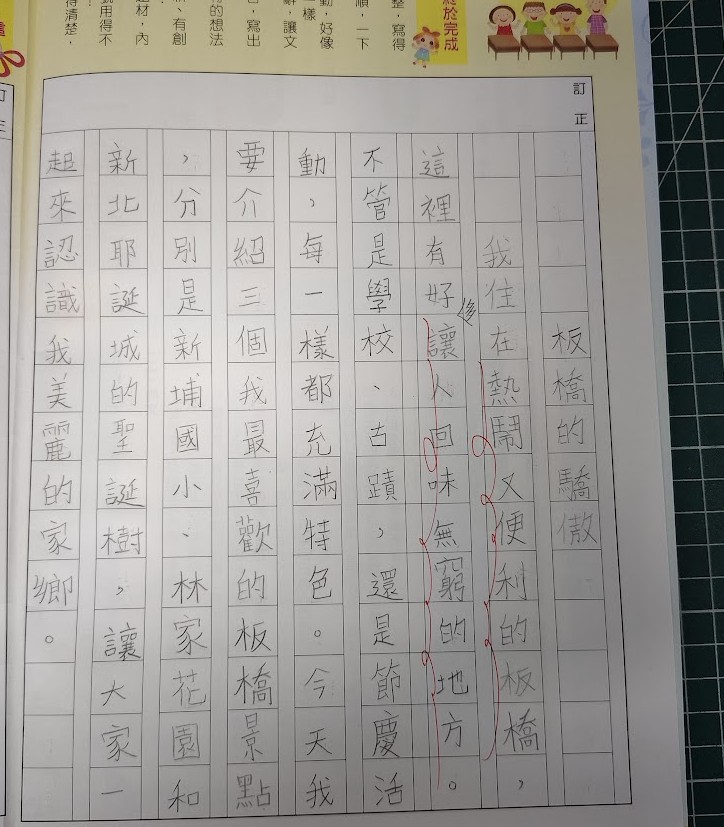 終於完成
整，寫得
順，一下
動，好像
一樣
，讓文
，寫出
的想法
、有創
題材，內
用得不
得清楚，
訂正
板橋的驕傲
我住在熱鬧又便利的板橋，
這裡有好多讓人回味無窮的地方。
不管是學校、古蹟，還是節慶活
動，每一樣都充滿特色。今天我
要介紹三個我最喜歡的板橋景點
，分別是新埔國小、林家花園和
新北耶誕城的聖誕樹，讓大家一
起來認識我美麗的家鄉。